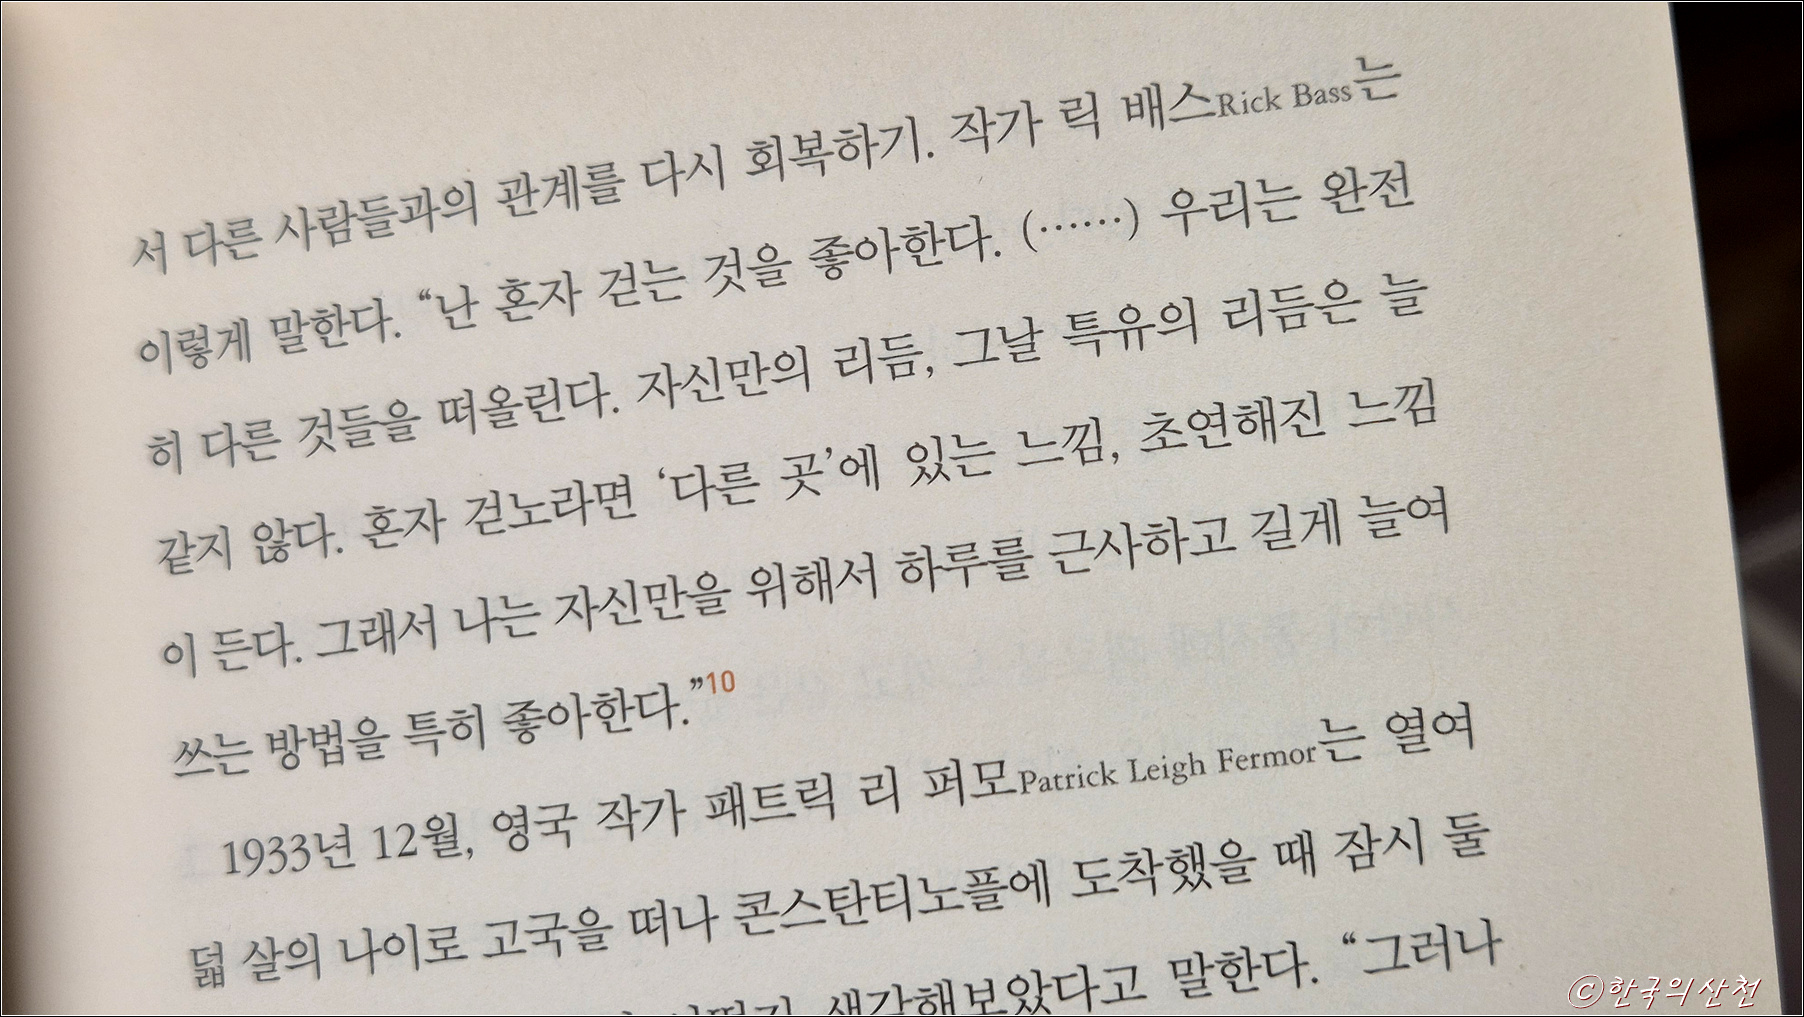 서 다른 사람들과의 관계를 다시 회복하기. 작가 릭 배스Rick Bass는
이렇게 말한다. “난 혼자 걷는 것을 좋아한다. (……) 우리는 완전
히 다른 것들을 떠올린다. 자신만의 리듬, 그날 특유의 리듬은 늘
같지 않다. 혼자 걷노라면 ‘다른 곳’에 있는 느낌, 초연해진 느낌
이 든다. 그래서 나는 자신만을 위해서 하루를 근사하고 길게 늘여
쓰는 방법을 특히 좋아한다.”10
1933년 12월, 영국 작가 패트릭 리 퍼모Patrick Leigh Fermor는 열여
덟 살의 나이로 고국을 떠나 콘스탄티노플에 도착했을 때 잠시 둘
생각해보았다고 말한다. “그러나
©한국의산천